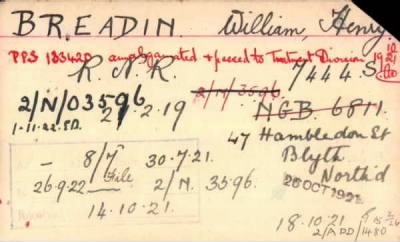 BREADIN. William, Henry.
PPS 133420 amalgamated & passed to Treatment Division 19/10/21
R. N. R. 7444. S.
2/N/03596 2/N/3596.
1-11-22. 27.2.19 NGB. 6811.
47 Hambledon St
Blyth
North'd
– 8/7 30.7.21.
26.9.22 File 2/N. 3596.
26 OCT 1921
14.10.21.
18.10.21
2/ADD/1480